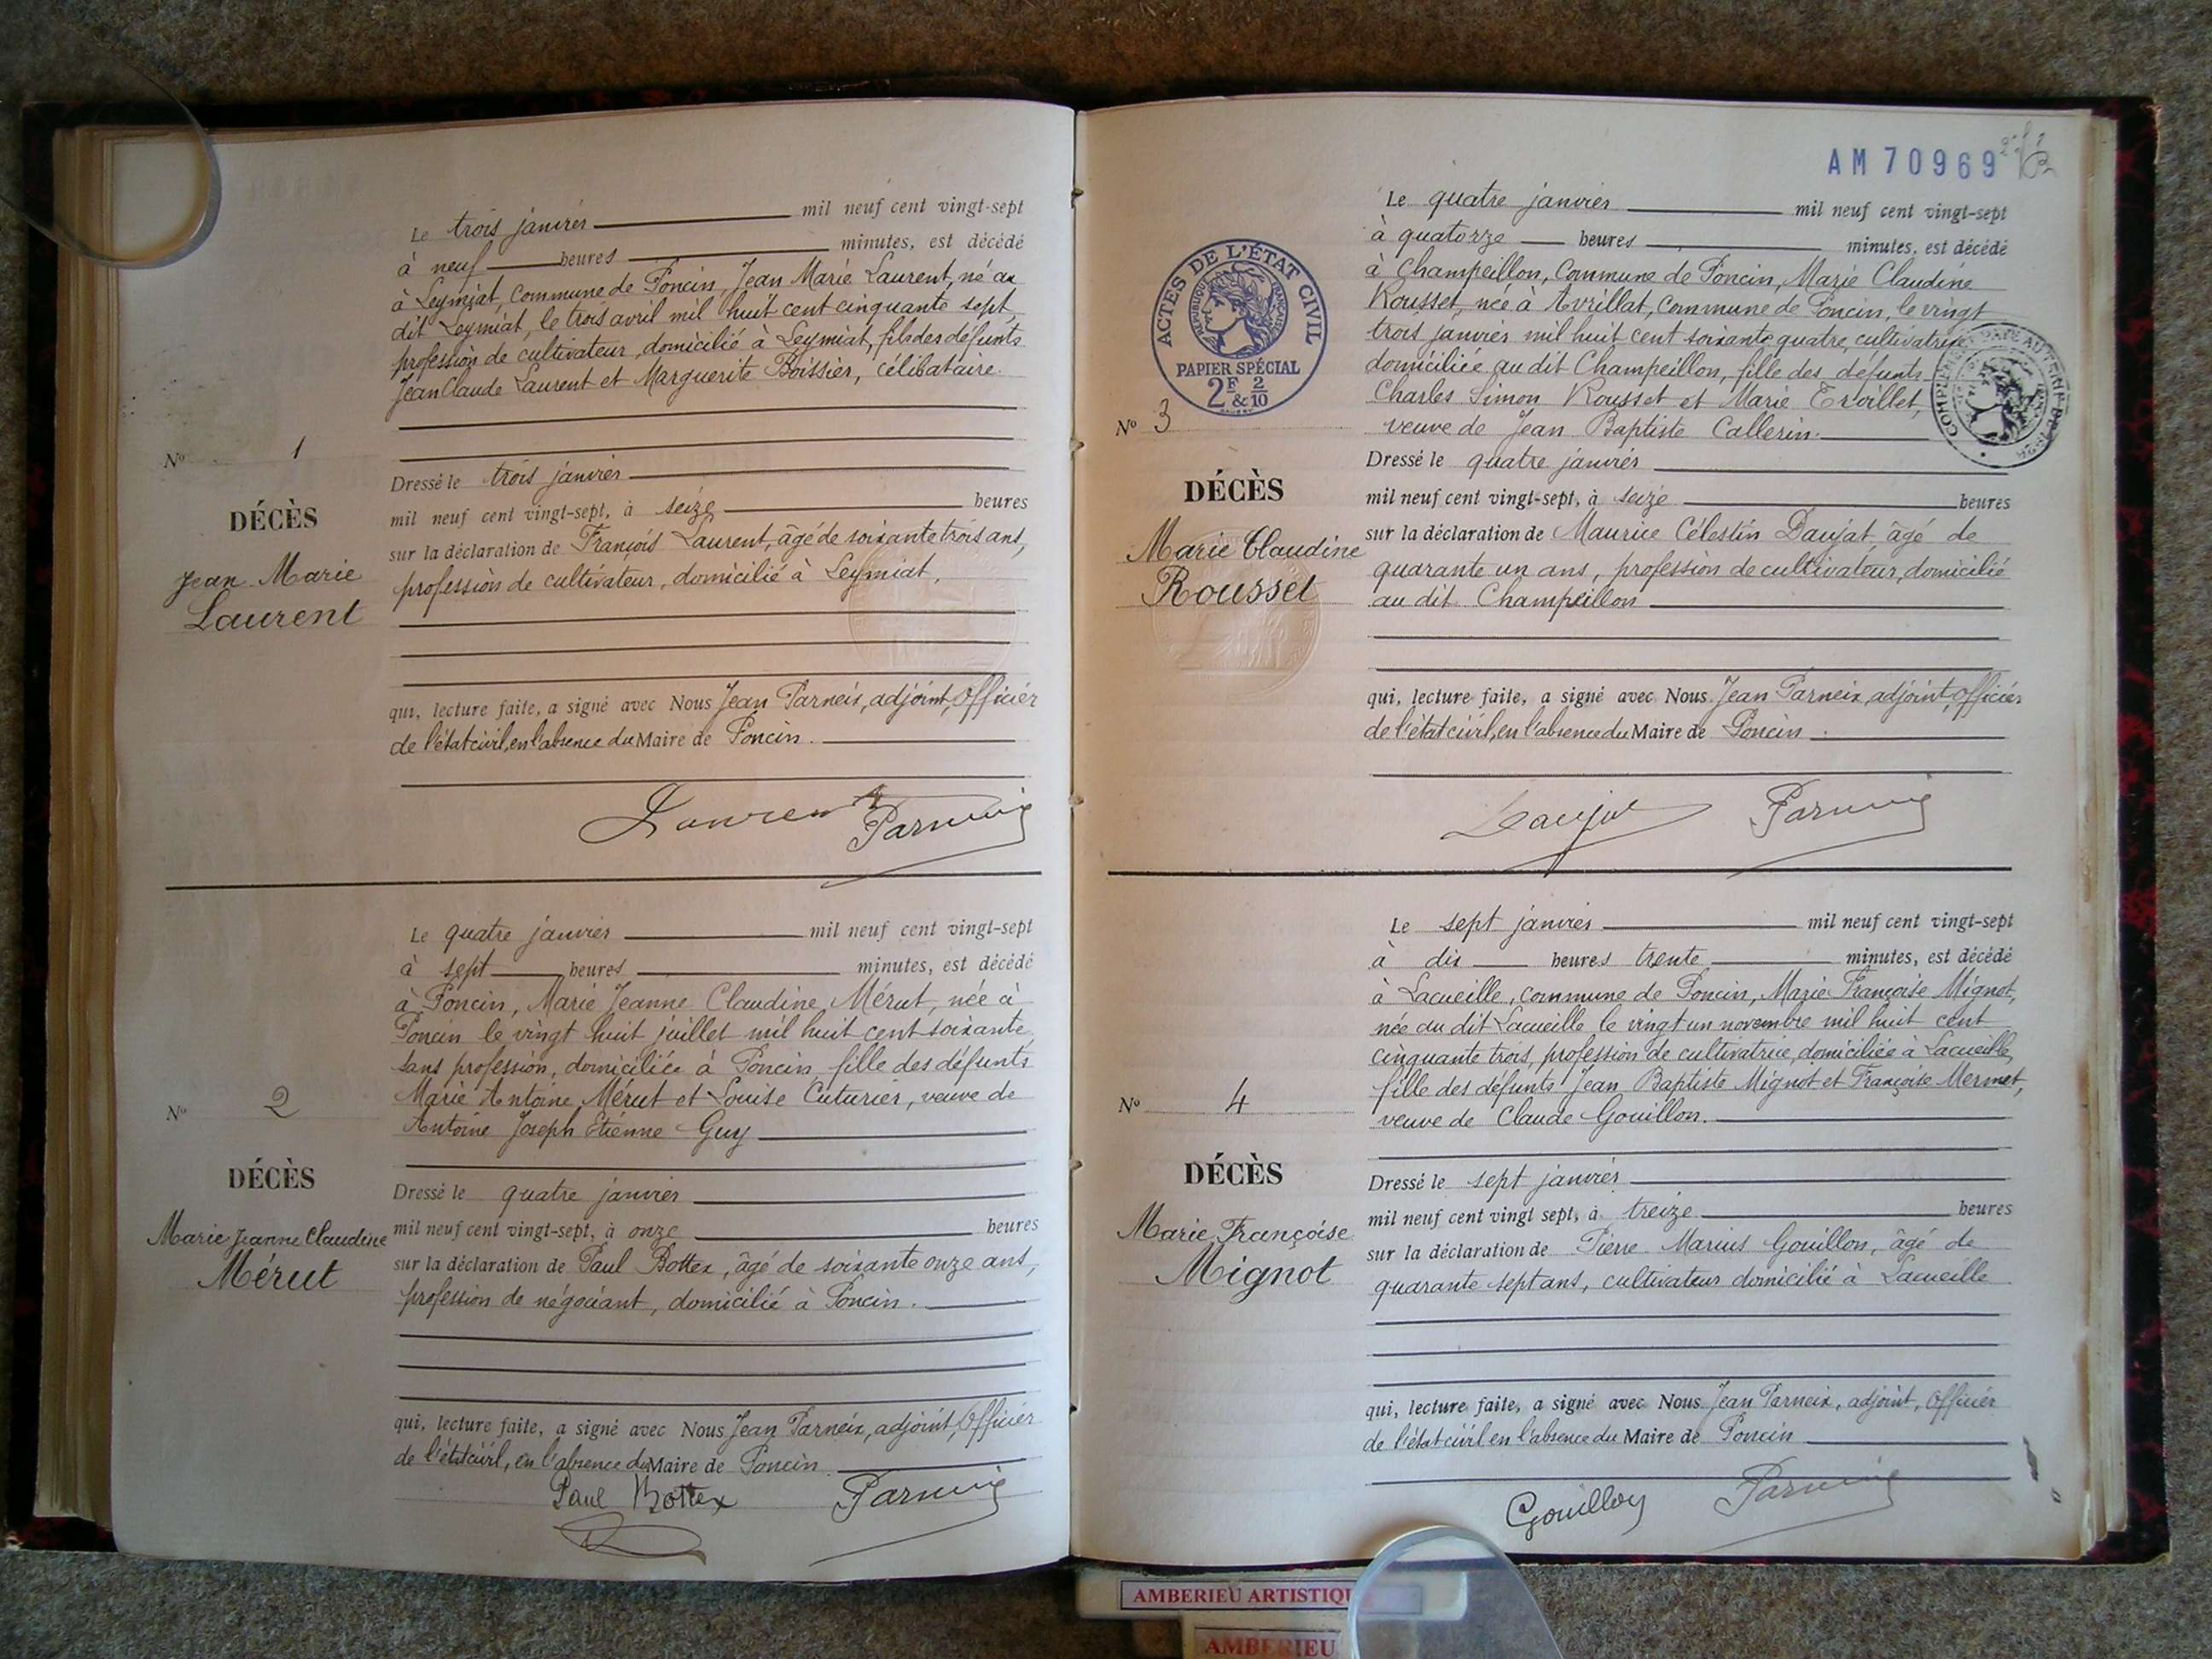 Le trois janvier mil neuf cent vingt-sept
à neuf heures minutes, est décédé
à Leymiat, commune de Poncin, Jean Marie Laurent, né au
dit Leymiat, le trois avril mil huit cent cinquante sept,
profession de cultivateur, domicilié à Leymiat, fils des défunts
Jean Claude Laurent et Marguerite Boissier, célibataire.
Nº 1
DÉCÈS
Jean Marie
Laurent
Dressé le trois janvier
mil neuf cent vingt-sept, à seize heures
sur la déclaration de François Laurent, âgé de soixante trois ans,
profession de cultivateur, domicilié à Leymiat,
qui, lecture faite, a signé avec Nous Jean Parneix, adjoint, Officier
de l'état civil, en l'absence du Maire de Poncin.
Laurent Parneix
Le quatre janvier mil neuf cent vingt-sept
à sept heures minutes, est décédé
à Poncin, Marie Jeanne Claudine Mérut, née à
Poncin le vingt huit juillet mil huit cent soixante
sans profession, domiciliée à Poncin, fille des défunts
Marie Antoine Mérut et Louise Cuturier, veuve de
Antoine Joseph Etienne Guy
Nº 2
DÉCÈS
Marie Jeanne Claudine
Mérut
Dressé le quatre janvier
mil neuf cent vingt-sept, à onze heures
sur la déclaration de Paul Bottex, âgé de soixante onze ans,
profession de négociant, domicilié à Poncin.
qui, lecture faite, a signé avec Nous Jean Parneix, adjoint, Officier
de l'état civil, en l'absence du Maire de Poncin.
Paul Bottex Parneix
AM 70969
ACTES DE L'ÉTAT CIVIL
RÉPUBLIQUE FRANÇAISE
PAPIER SPÉCIAL
2F & 2/10
Le quatre janvier mil neuf cent vingt-sept
à quatorze heures minutes, est décédé
à Champeillon, Commune de Poncin, Marie Claudine
Rousset, née à Avrillat, commune de Poncin, le vingt
trois janvier mil huit cent soixante quatre, cultivatrice
domiciliée au dit Champeillon, fille des défunts
Charles Simon Rousset et Marie Ervillet,
veuve de Jean Baptiste Callerin.
Nº 3
DÉCÈS
Marie Claudine
Rousset
Dressé le quatre janvier
mil neuf cent vingt-sept, à seize heures
sur la déclaration de Maurice Célestin Daujat, âgé de
quarante un ans, profession de cultivateur, domicilié
au dit Champeillon
qui, lecture faite, a signé avec Nous Jean Parneix, adjoint, Officier
de l'état civil, en l'absence du Maire de Poncin.
Daujat Parneix
Le sept janvier mil neuf cent vingt-sept
à dix heures trente minutes, est décédé
à Lacueille, commune de Poncin, Marie Françoise Mignot,
née au dit Lacueille, le vingt un novembre mil huit cent
cinquante trois, profession de cultivatrice, domiciliée à Lacueille,
fille des défunts Jean Baptiste Mignot et Françoise Mermet,
veuve de Claude Gouillon.
Nº 4
DÉCÈS
Marie Françoise
Mignot
Dressé le sept janvier
mil neuf cent vingt sept, à treize heures
sur la déclaration de Pierre Marius Gouillon, âgé de
quarante sept ans, cultivateur domicilié à Lacueille
qui, lecture faite, a signé avec Nous Jean Parneix, adjoint, Officier
de l'état civil en l'absence du Maire de Poncin
Gouillon Parneix
AMBERIEU ARTISTIQU
AMBERIEU